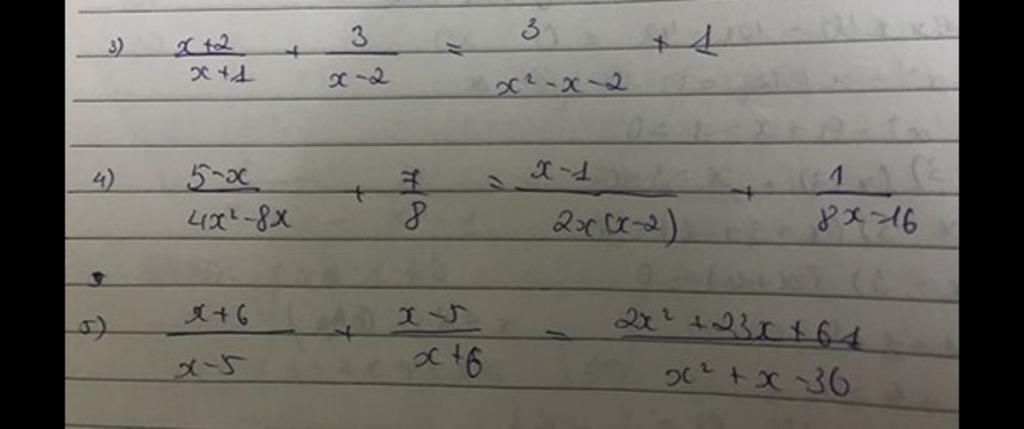 3) (x+2)/(x+1) + 3/(x-2) = 3/(x²-x-2) + 1
4) (5-x)/(4x²-8x) + 7/8 = (x-1)/(2x(x-2)) + 1/(8x-16)
5) (x+6)/(x-5) + (x-5)/(x+6) = (2x²+23x+61)/(x²+x-36)